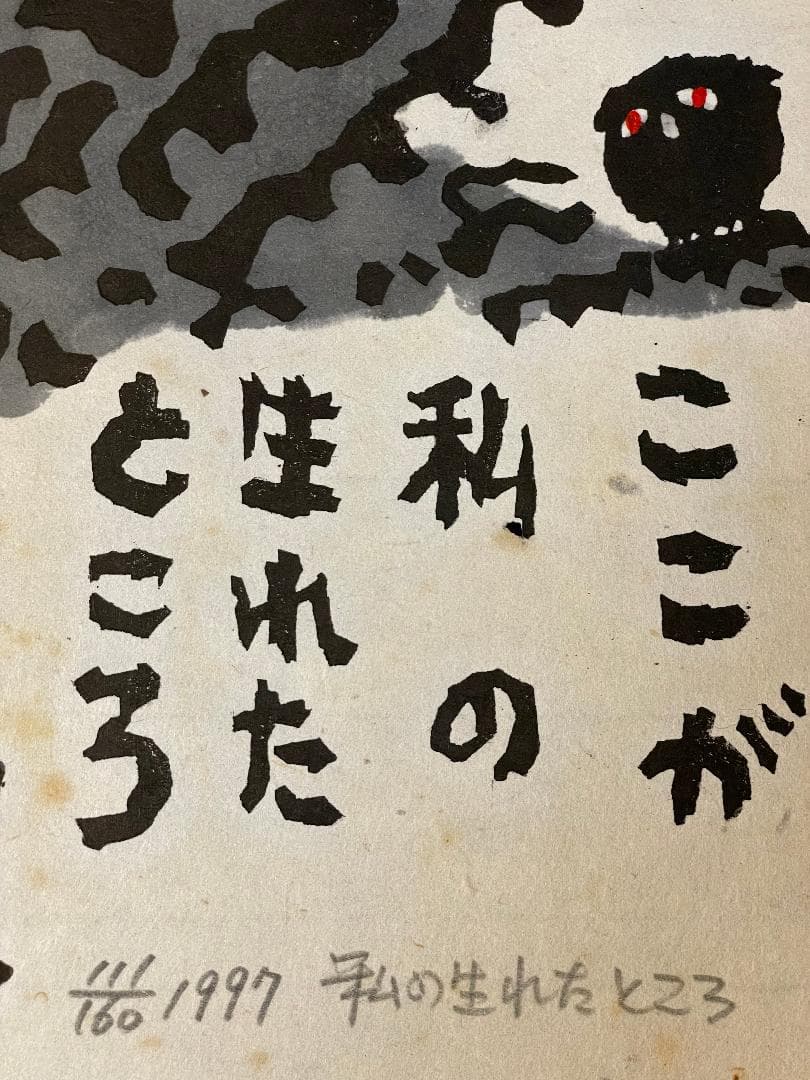 ここが
私の
生れた
ところ
111/160 1997 私の生れたところ